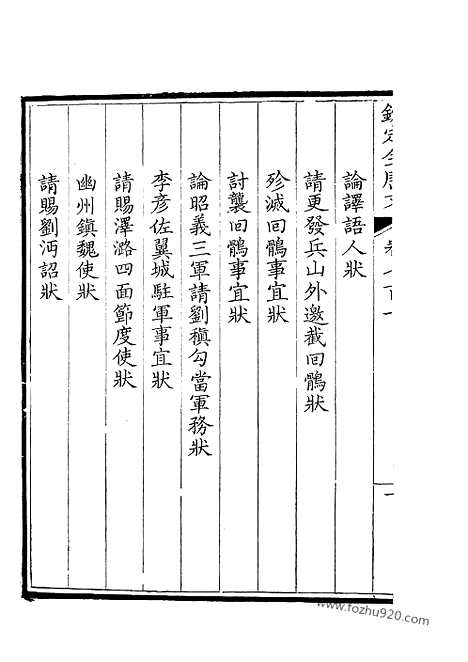 欽定全唐文
卷七百一
一
論譯語人狀
請更發兵山外邀截回鶻狀
殄滅回鶻事宜狀
討襲回鶻事宜狀
論昭義三軍請劉稹勾當軍務狀
李彥佐翼城駐軍事宜狀
請賜澤潞四面節度使狀
幽州鎮魏使狀
請賜劉沔詔狀
www.fozhu920.com